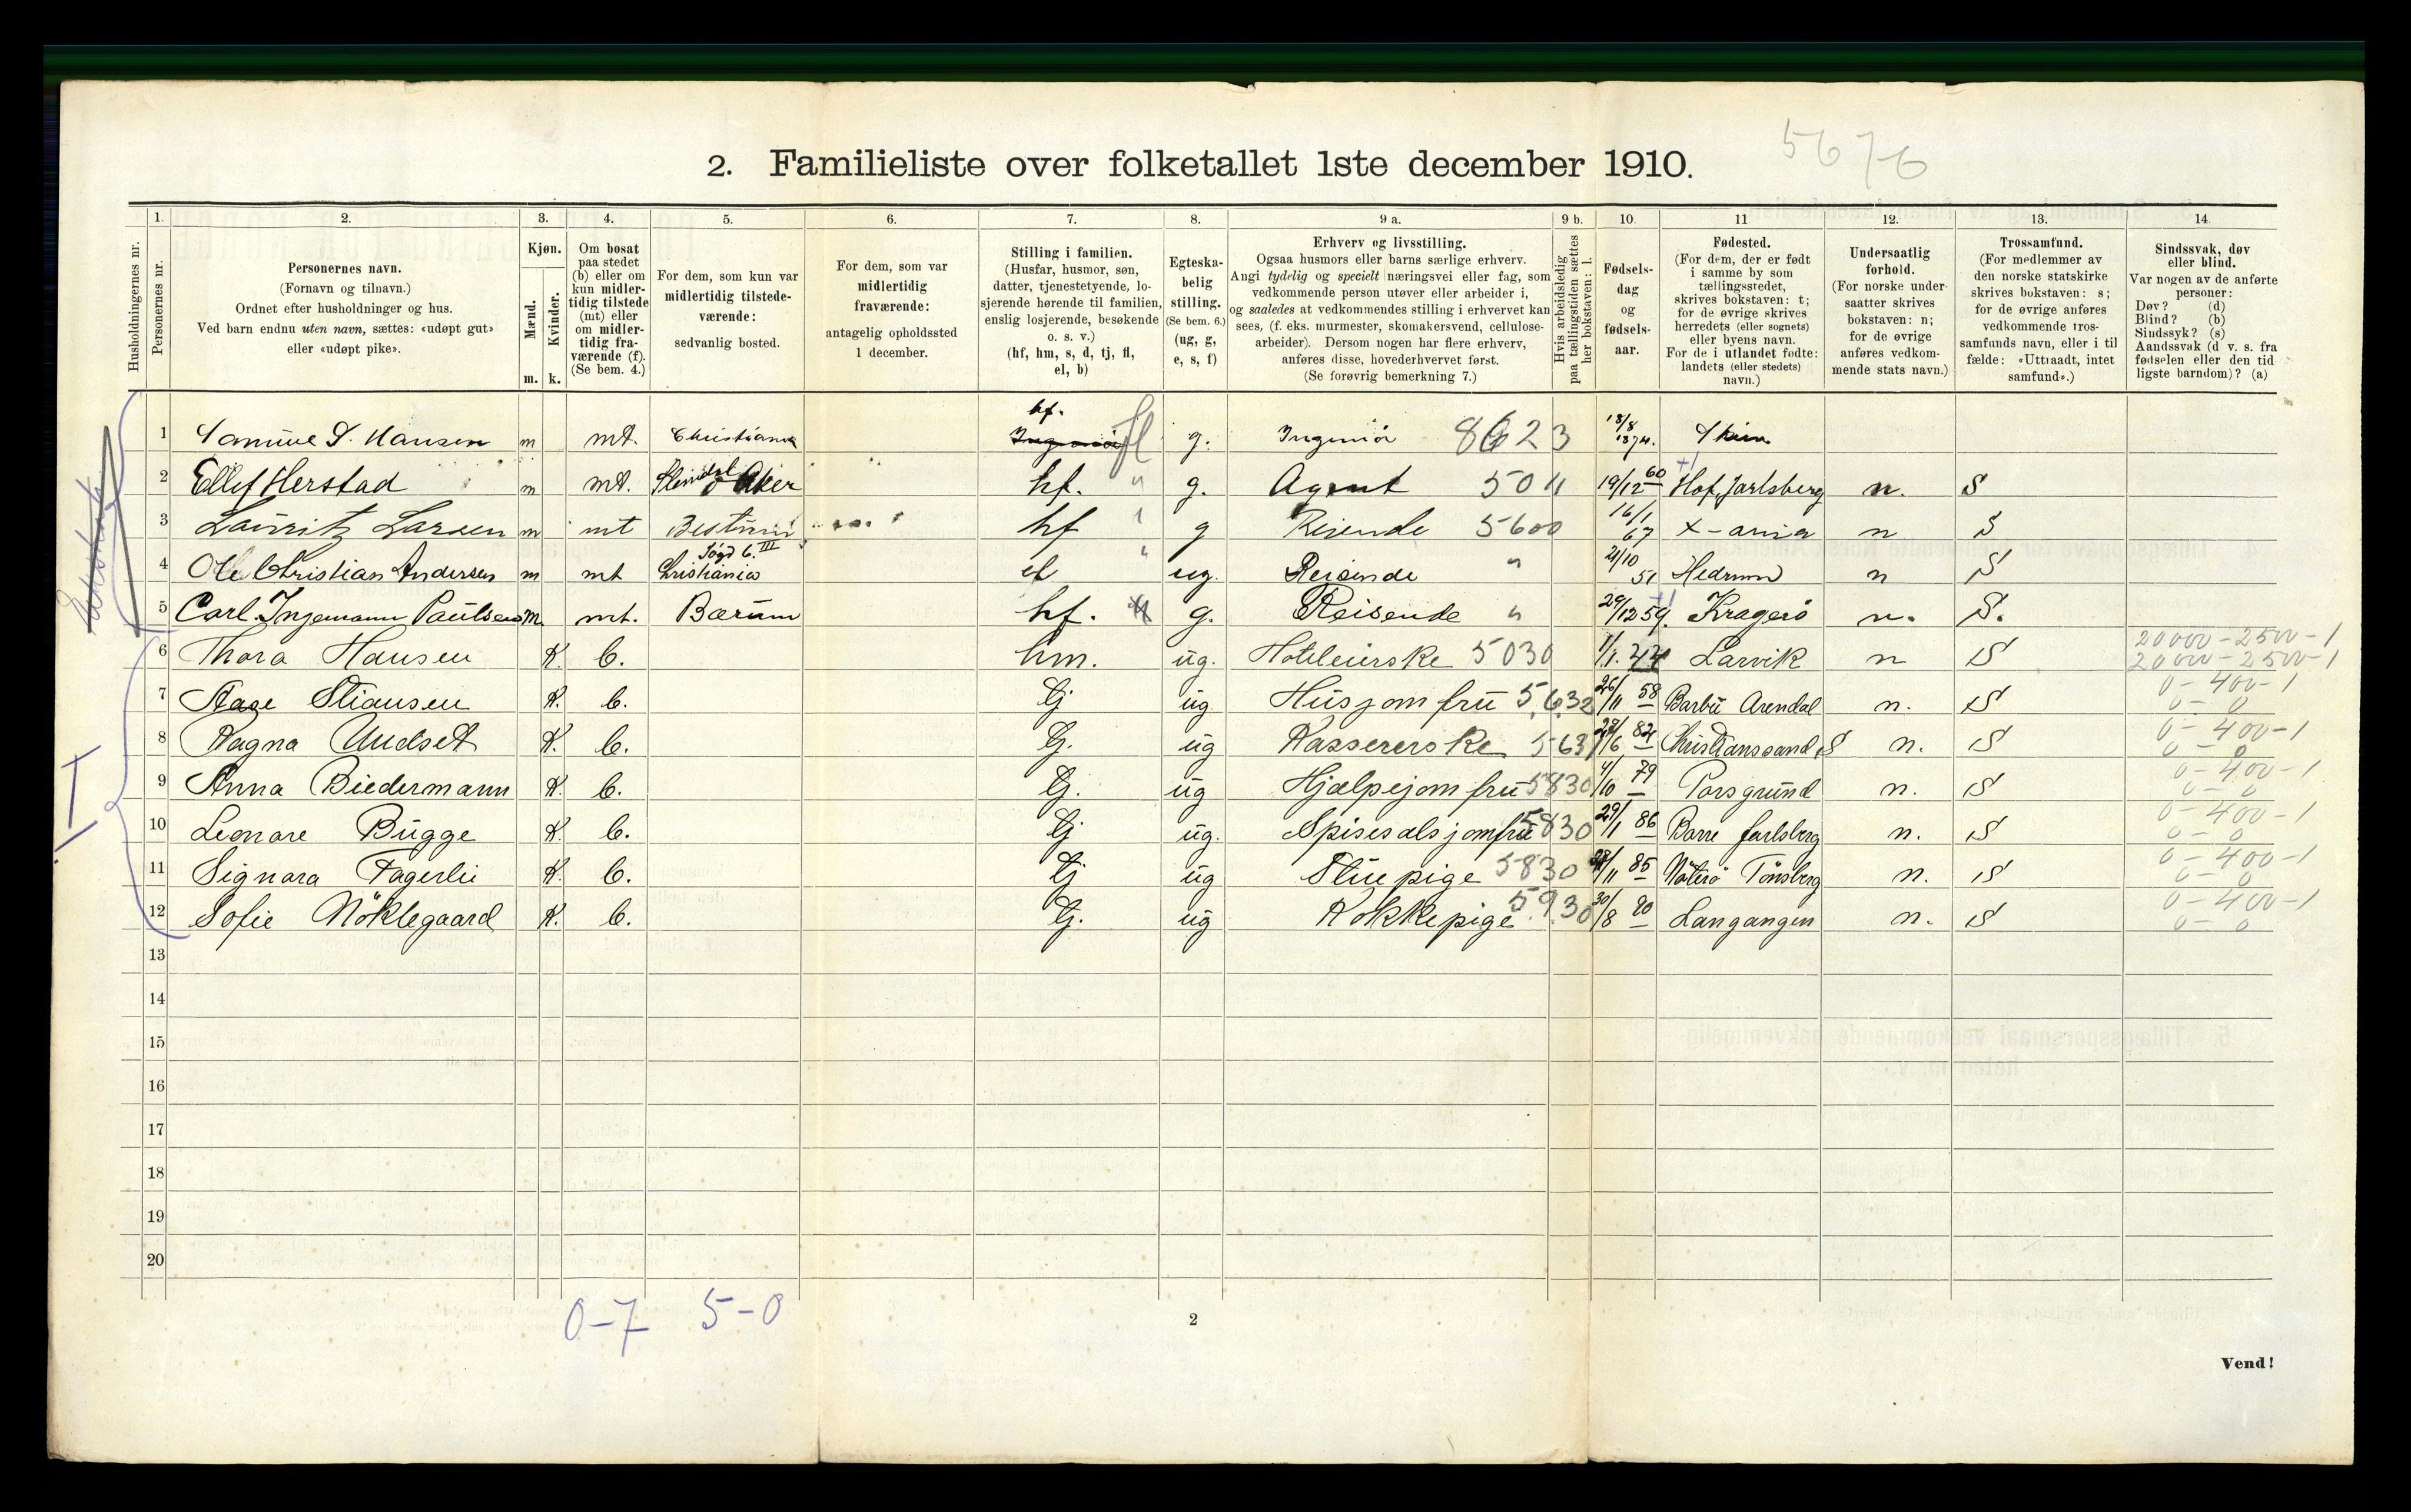 5676
2. Familieliste over folketallet 1ste december 1910.
1. 2. 3. 4. 5. 6. 7. 8. 9 a. 9 b. 10. 11 12. 13. 14.
Husholdningernes nr.
Personernes nr.
Personernes navn.
(Fornavn og tilnavn.)
Ordnet efter husholdninger og hus.
Ved barn endnu uten navn, sættes: «udøpt gut»
eller «udøpt pike».
Kjøn.
Mænd.
Kvinder.
m. k.
Om bosat
paa stedet
(b) eller om
kun midler-
tidig tilstede
(mt) eller
om midler-
tidig fra-
værende (f).
(Se bem. 4.)
For dem, som kun var
midlertidig tilstede-
værende:
sedvanlig bosted.
For dem, som var
midlertidig
fraværende:
antagelig opholdssted
1 december.
Stilling i familien.
(Husfar, husmor, søn,
datter, tjenestetyende, lo-
sjerende hørende til familien,
enslig losjerende, besøkende
o. s. v.)
(hf, hm, s, d, tj, fl,
el, b)
Egteska-
belig
stilling.
(Se bem. 6.)
(ug, g,
e, s, f)
Erhverv og livsstilling.
Ogsaa husmors eller barns særlige erhverv.
Angi tydelig og specielt næringsvei eller fag, som
vedkommende person utøver eller arbeider i,
og saaledes at vedkommendes stilling i erhvervet kan
sees, (f. eks. murmester, skomakersvend, cellulose-
arbeider). Dersom nogen har flere erhverv,
anføres disse, hovederhvervet først.
(Se forøvrig bemerkning 7.)
Hvis arbeidsledig
paa tællingstiden sættes
her bokstaven: l.
Fødsels-
dag
og
fødsels-
aar.
Fødested.
(For dem, der er født
i samme by som
tællingsstedet,
skrives bokstaven: t;
for de øvrige skrives
herredets (eller sognets)
eller byens navn.
For de i utlandet fødte:
landets (eller stedets)
navn.)
Undersaatlig
forhold.
(For norske under-
saatter skrives
bokstaven: n;
for de øvrige
anføres vedkom-
mende stats navn.)
Trossamfund.
(For medlemmer av
den norske statskirke
skrives bokstaven: s;
for de øvrige anføres
vedkommende tros-
samfunds navn, eller i til
fælde: «Uttraadt, intet
samfund».)
Sindssvak, døv
eller blind.
Var nogen av de anførte
personer:
Døv? (d)
Blind? (b)
Sindssyk? (s)
Aandssvak (d v. s. fra
fødselen eller den tid
ligste barndom)? (a)
1 Samuel S. Hansen m mt. Christiania hf. fl g. Ingeniör 8623 18/8 1874. Skien
2 Ellef Herstad m mt. Aker hf. " g. Agent 5011 19/12 60 Hof, Jarlsberg n. S
3 Lauritz Larsen m mt hf " g Reisende 5600 16/1 67 X-ania n S
4 Ole Christian Andersen m mt Christiania el " ug. Reisende " 21/10 51 Hedrum n S
5 Carl Ingemann Paulsen m. mt. Bærum hf. g. Reisende " 29/12 59. Kragerö n. S.
6 Thora Hansen K. b. hm. ug. Hoteleierske 5030 1/1. 44 Larvik n S 20000-2500-1
20000-2500-1
7 Aase Stiansen K. b. tj ug Husjomfru 5632 26/11 58 Barbu Arendal n. S 0-400-1
0-0
8 Ragna Undset K. b. tj. ug Kassererske 5637 /6 82 Kristianssand S n. S 0-400-1
0-0
9 Anna Biedermann K. b. tj. ug Hjælpejomfru 5830 4/10 79 Porsgrund n. S 0-400-1
0-0
10 Leonore Bugge K. b. tj ug. Spisesalsjomfru 5830 29/1 86 Borre Jarlsberg n. S 0-400-1
0-0
11 Signora Fagerlie K. b. tj ug Stuepige 5830 /11 85 Nöterö Tönsberg n. S 0-400-1
0-0
12 Sofie Nöklegaard K. b. tj. ug Kokkepige 5930 30/8 80 Langangen n. S 0-400-1
0-0
13
14
15
16
17
18
19
20
I
0-7 5-0
2
Vend!